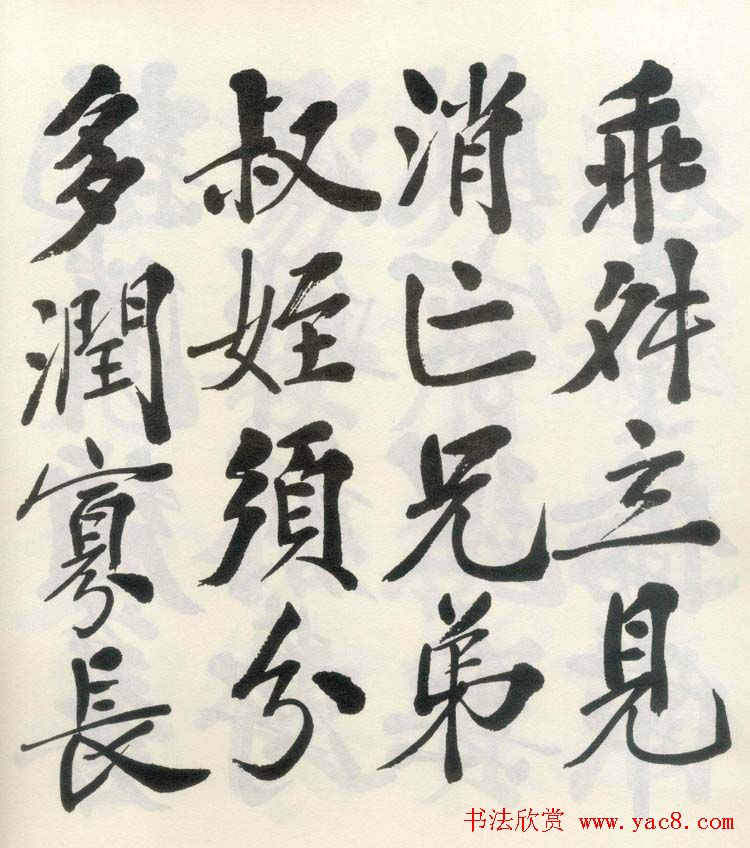 乖舛立見
消亡兄弟
叔姪須分
多潤寡長
书法欣赏 www.yac8.com